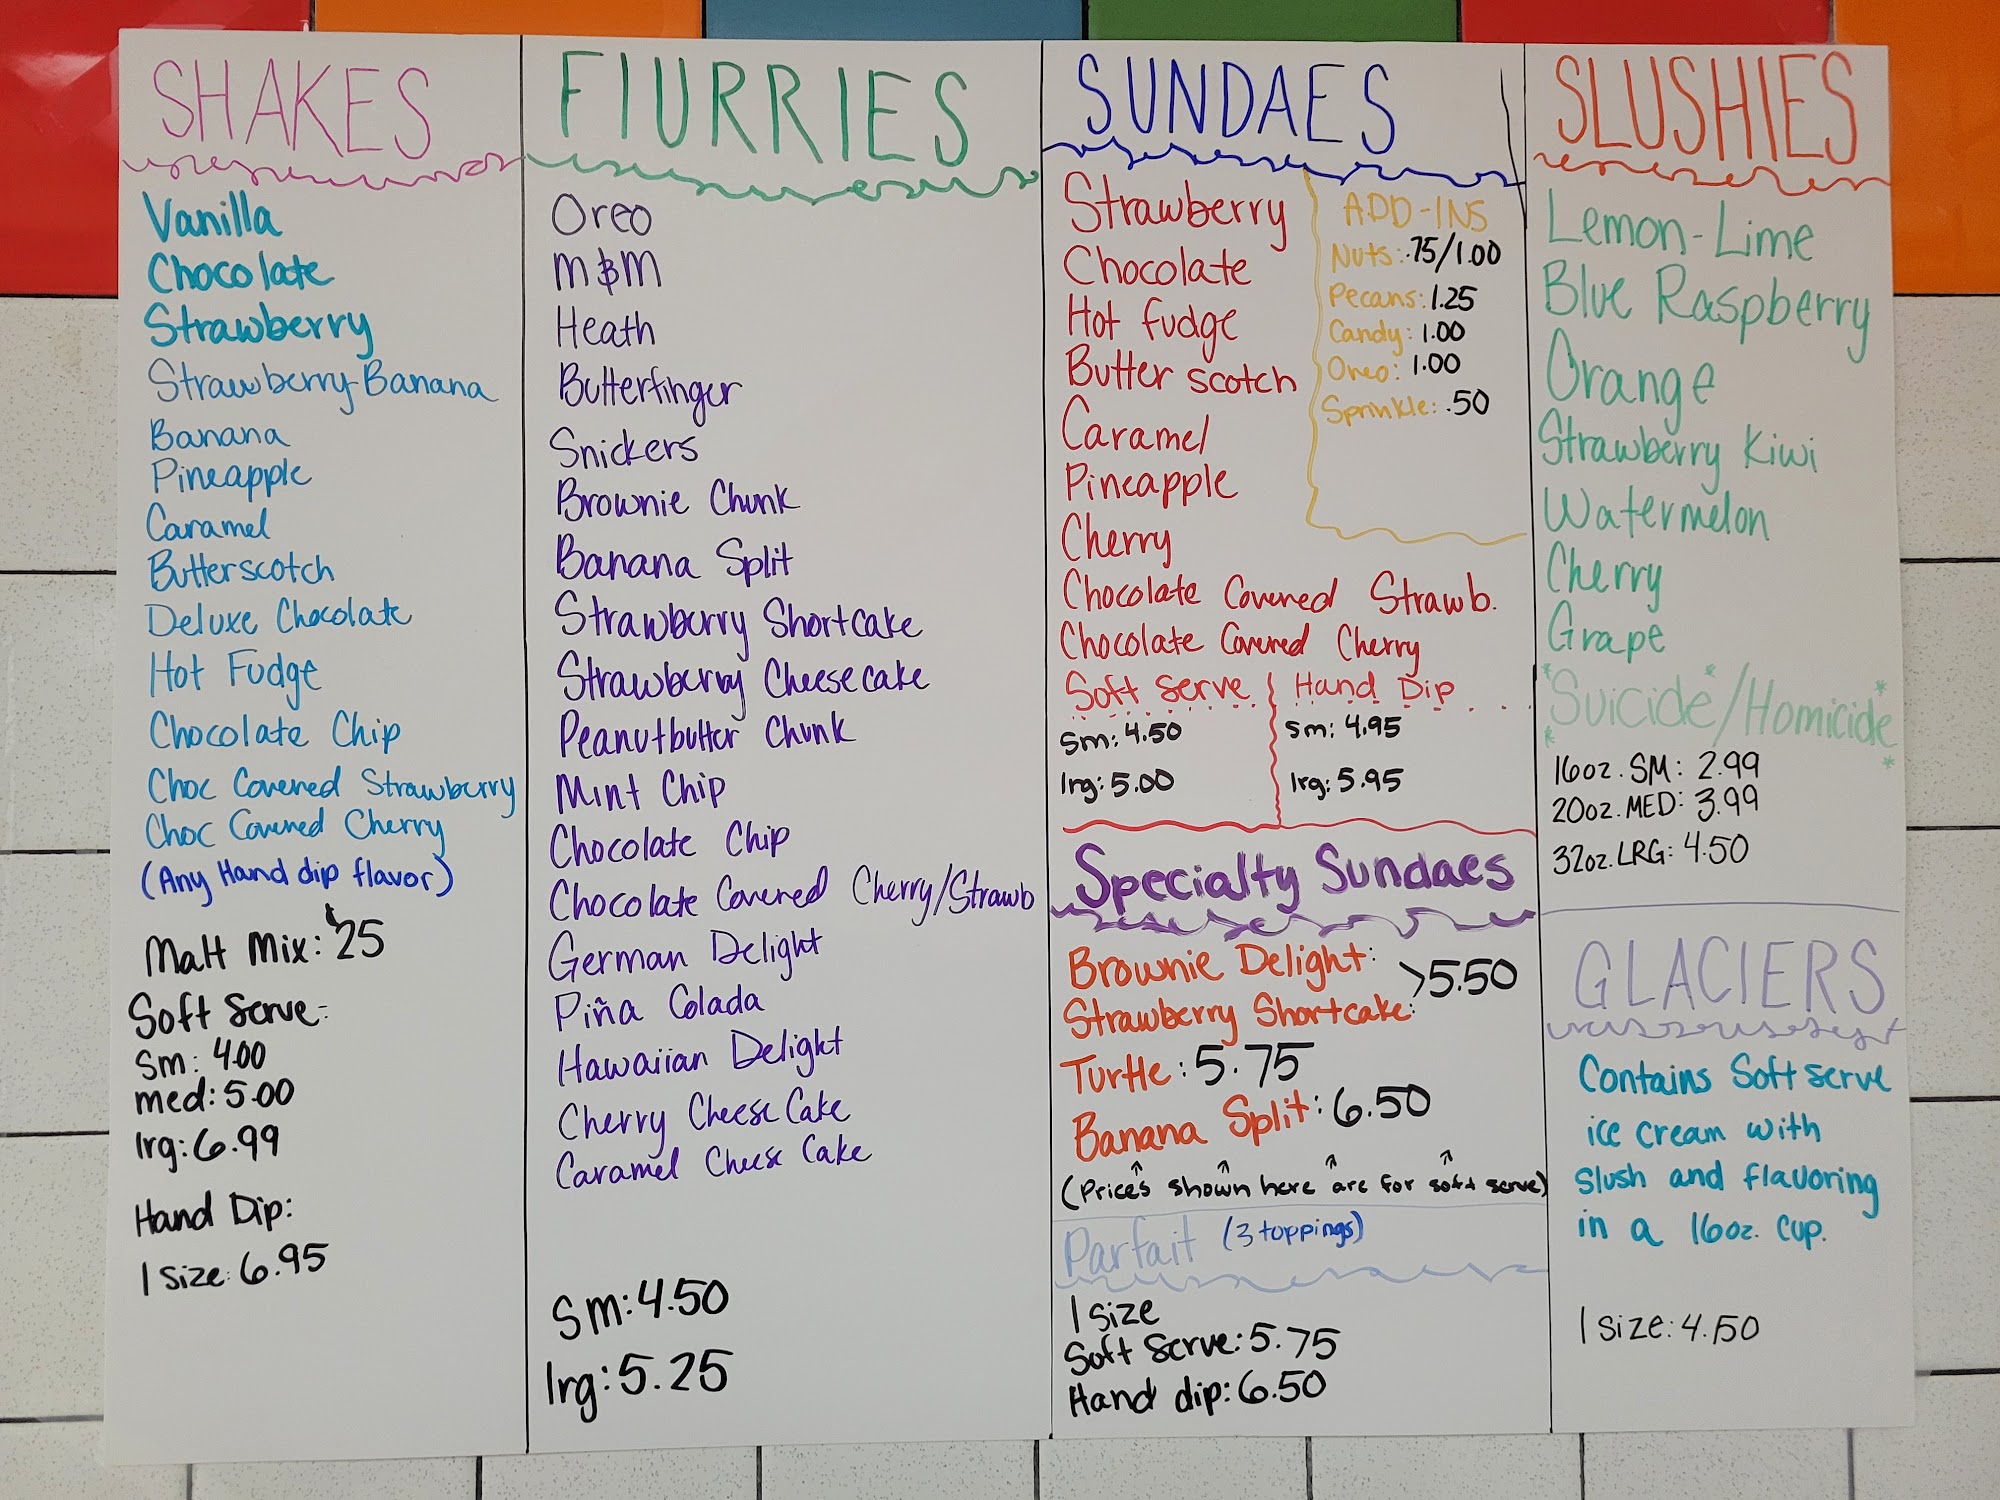 SHAKES
Vanilla
Chocolate
Strawberry
Strawberry-Banana
Banana
Pineapple
Caramel
Butterscotch
Deluxe Chocolate
Hot Fudge
Chocolate Chip
Choc Covered Strawberry
Choc Covered Cherry
(Any Hand dip flavor)
Malt Mix: .25
Soft Serve:
Sm: 4.00
med: 5.00
lrg: 6.99
Hand Dip:
1 size: 6.95
FlURRIES
Oreo
M&M
Heath
Butterfinger
Snickers
Brownie Chunk
Banana Split
Strawberry Shortcake
Strawberry Cheesecake
Peanutbutter Chunk
Mint Chip
Chocolate Chip
Chocolate Covered Cherry/Strawb
German Delight
Piña Colada
Hawaiian Delight
Cherry CheeseCake
Caramel Cheese Cake
Sm: 4.50
lrg: 5.25
SUNDAES
Strawberry
Chocolate
Hot fudge
Butter scotch
Caramel
Pineapple
Cherry
Chocolate Covered Strawb.
Chocolate Covered Cherry
ADD-INS
Nuts: .75/1.00
Pecans: 1.25
Candy: 1.00
Oreo: 1.00
Sprinkle: .50
Soft Serve
Sm: 4.50
lrg: 5.00
Hand Dip
Sm: 4.95
lrg: 5.95
Specialty Sundaes
Brownie Delight:
Strawberry Shortcake: >5.50
Turtle: 5.75
Banana Split: 6.50
(Prices shown here are for soft serve)
Parfait (3 toppings)
1 size
Soft Serve: 5.75
Hand dip: 6.50
SLUSHIES
Lemon-Lime
Blue Raspberry
Orange
Strawberry Kiwi
Watermelon
Cherry
Grape
*Suicide*/Homicide*
16oz. SM: 2.99
20oz. MED: 3.99
32oz. LRG: 4.50
GLACIERS
Contains Soft serve
ice cream with
slush and flavoring
in a 16oz. cup.
1 size: 4.50